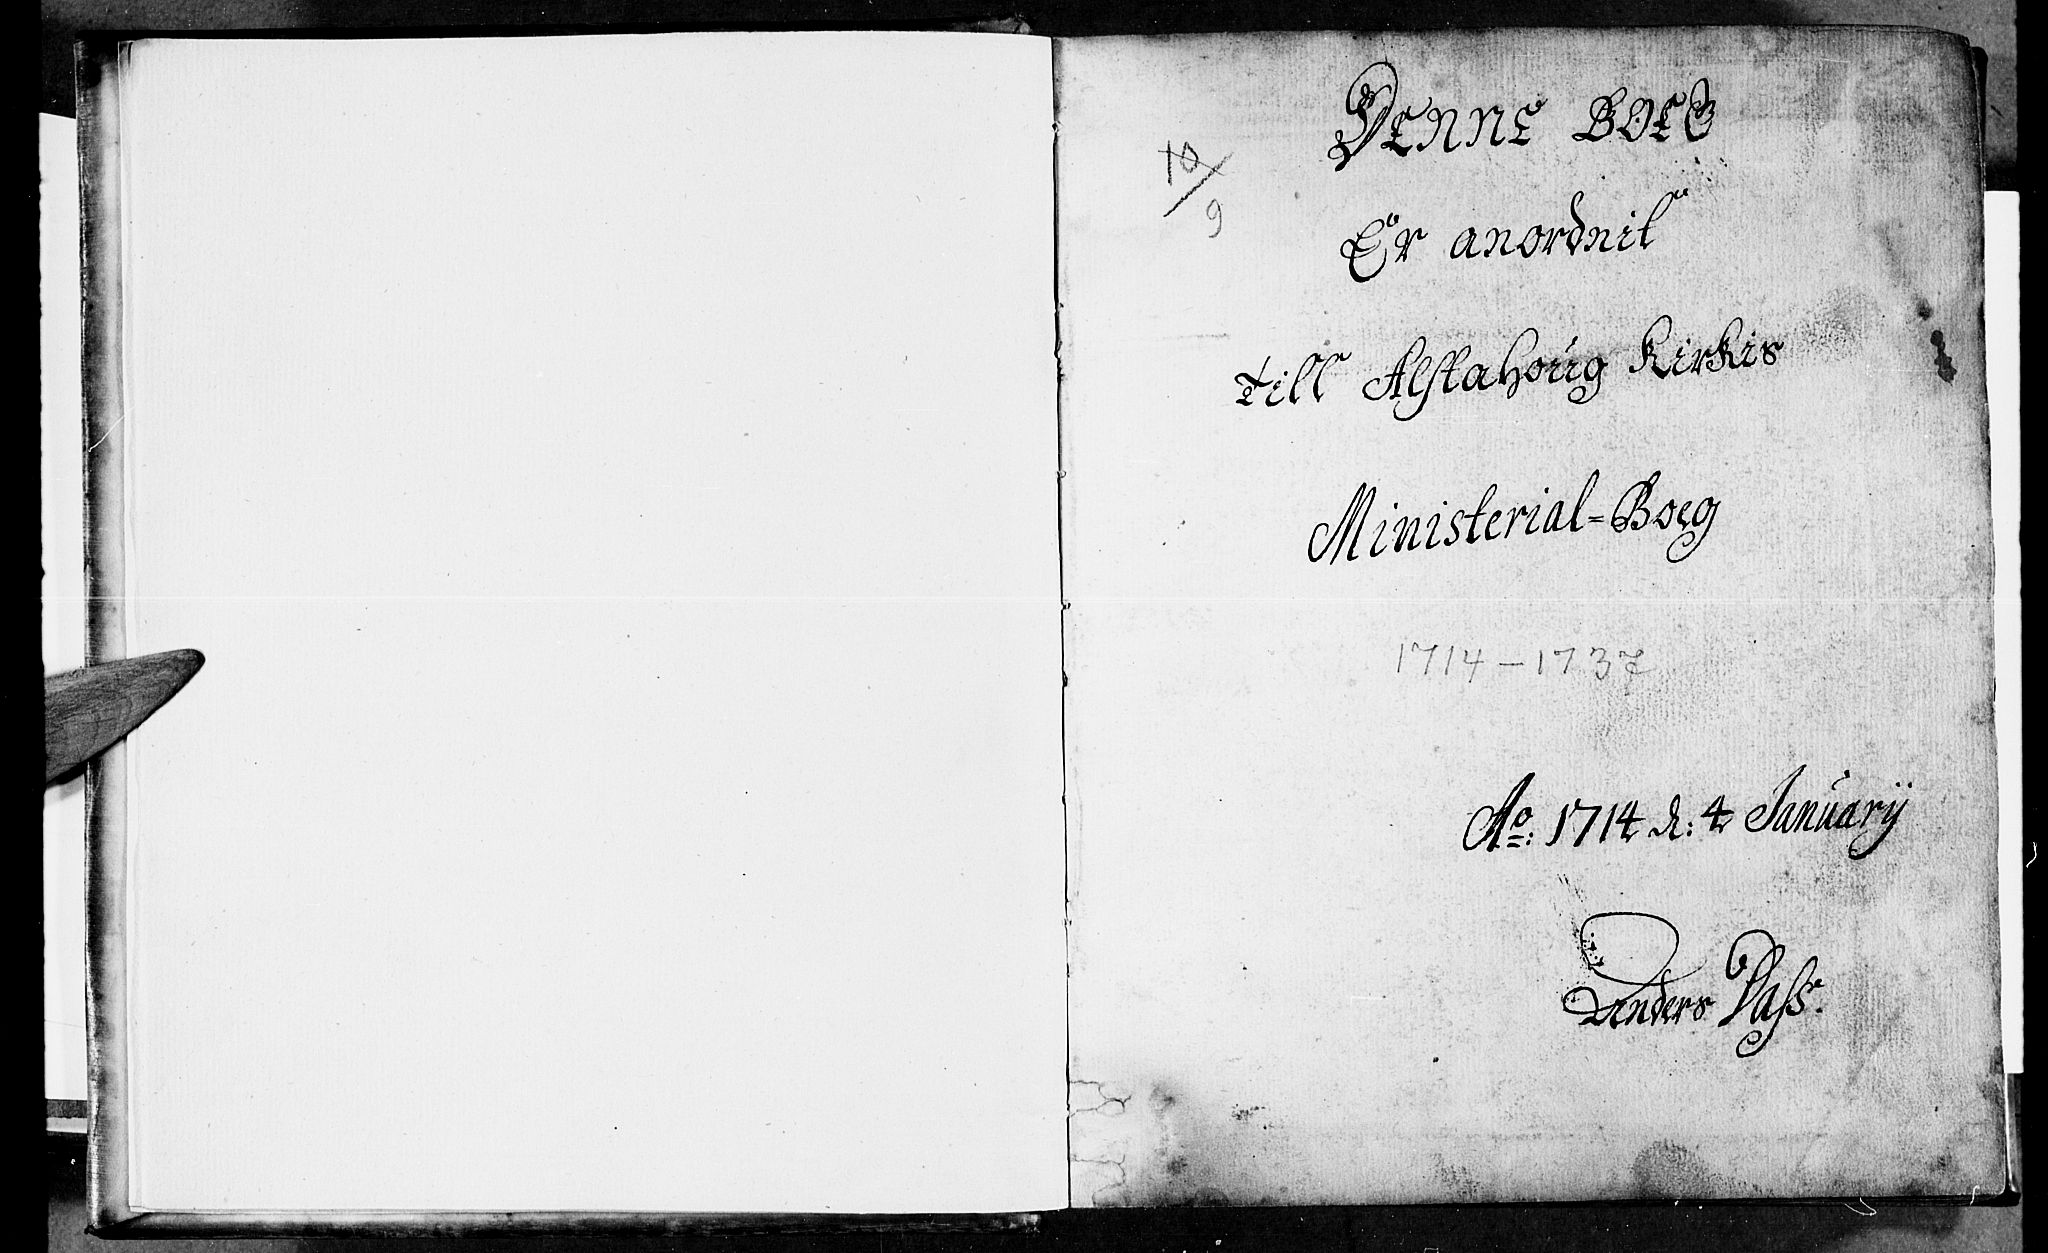 10/9
Denne Boeg
Er anordnit
till Alstahoúg Kirkis
Ministerial=Boeg
1714 – 1737
Ao: 1714 d: 4 Januarij
Anders Dass.